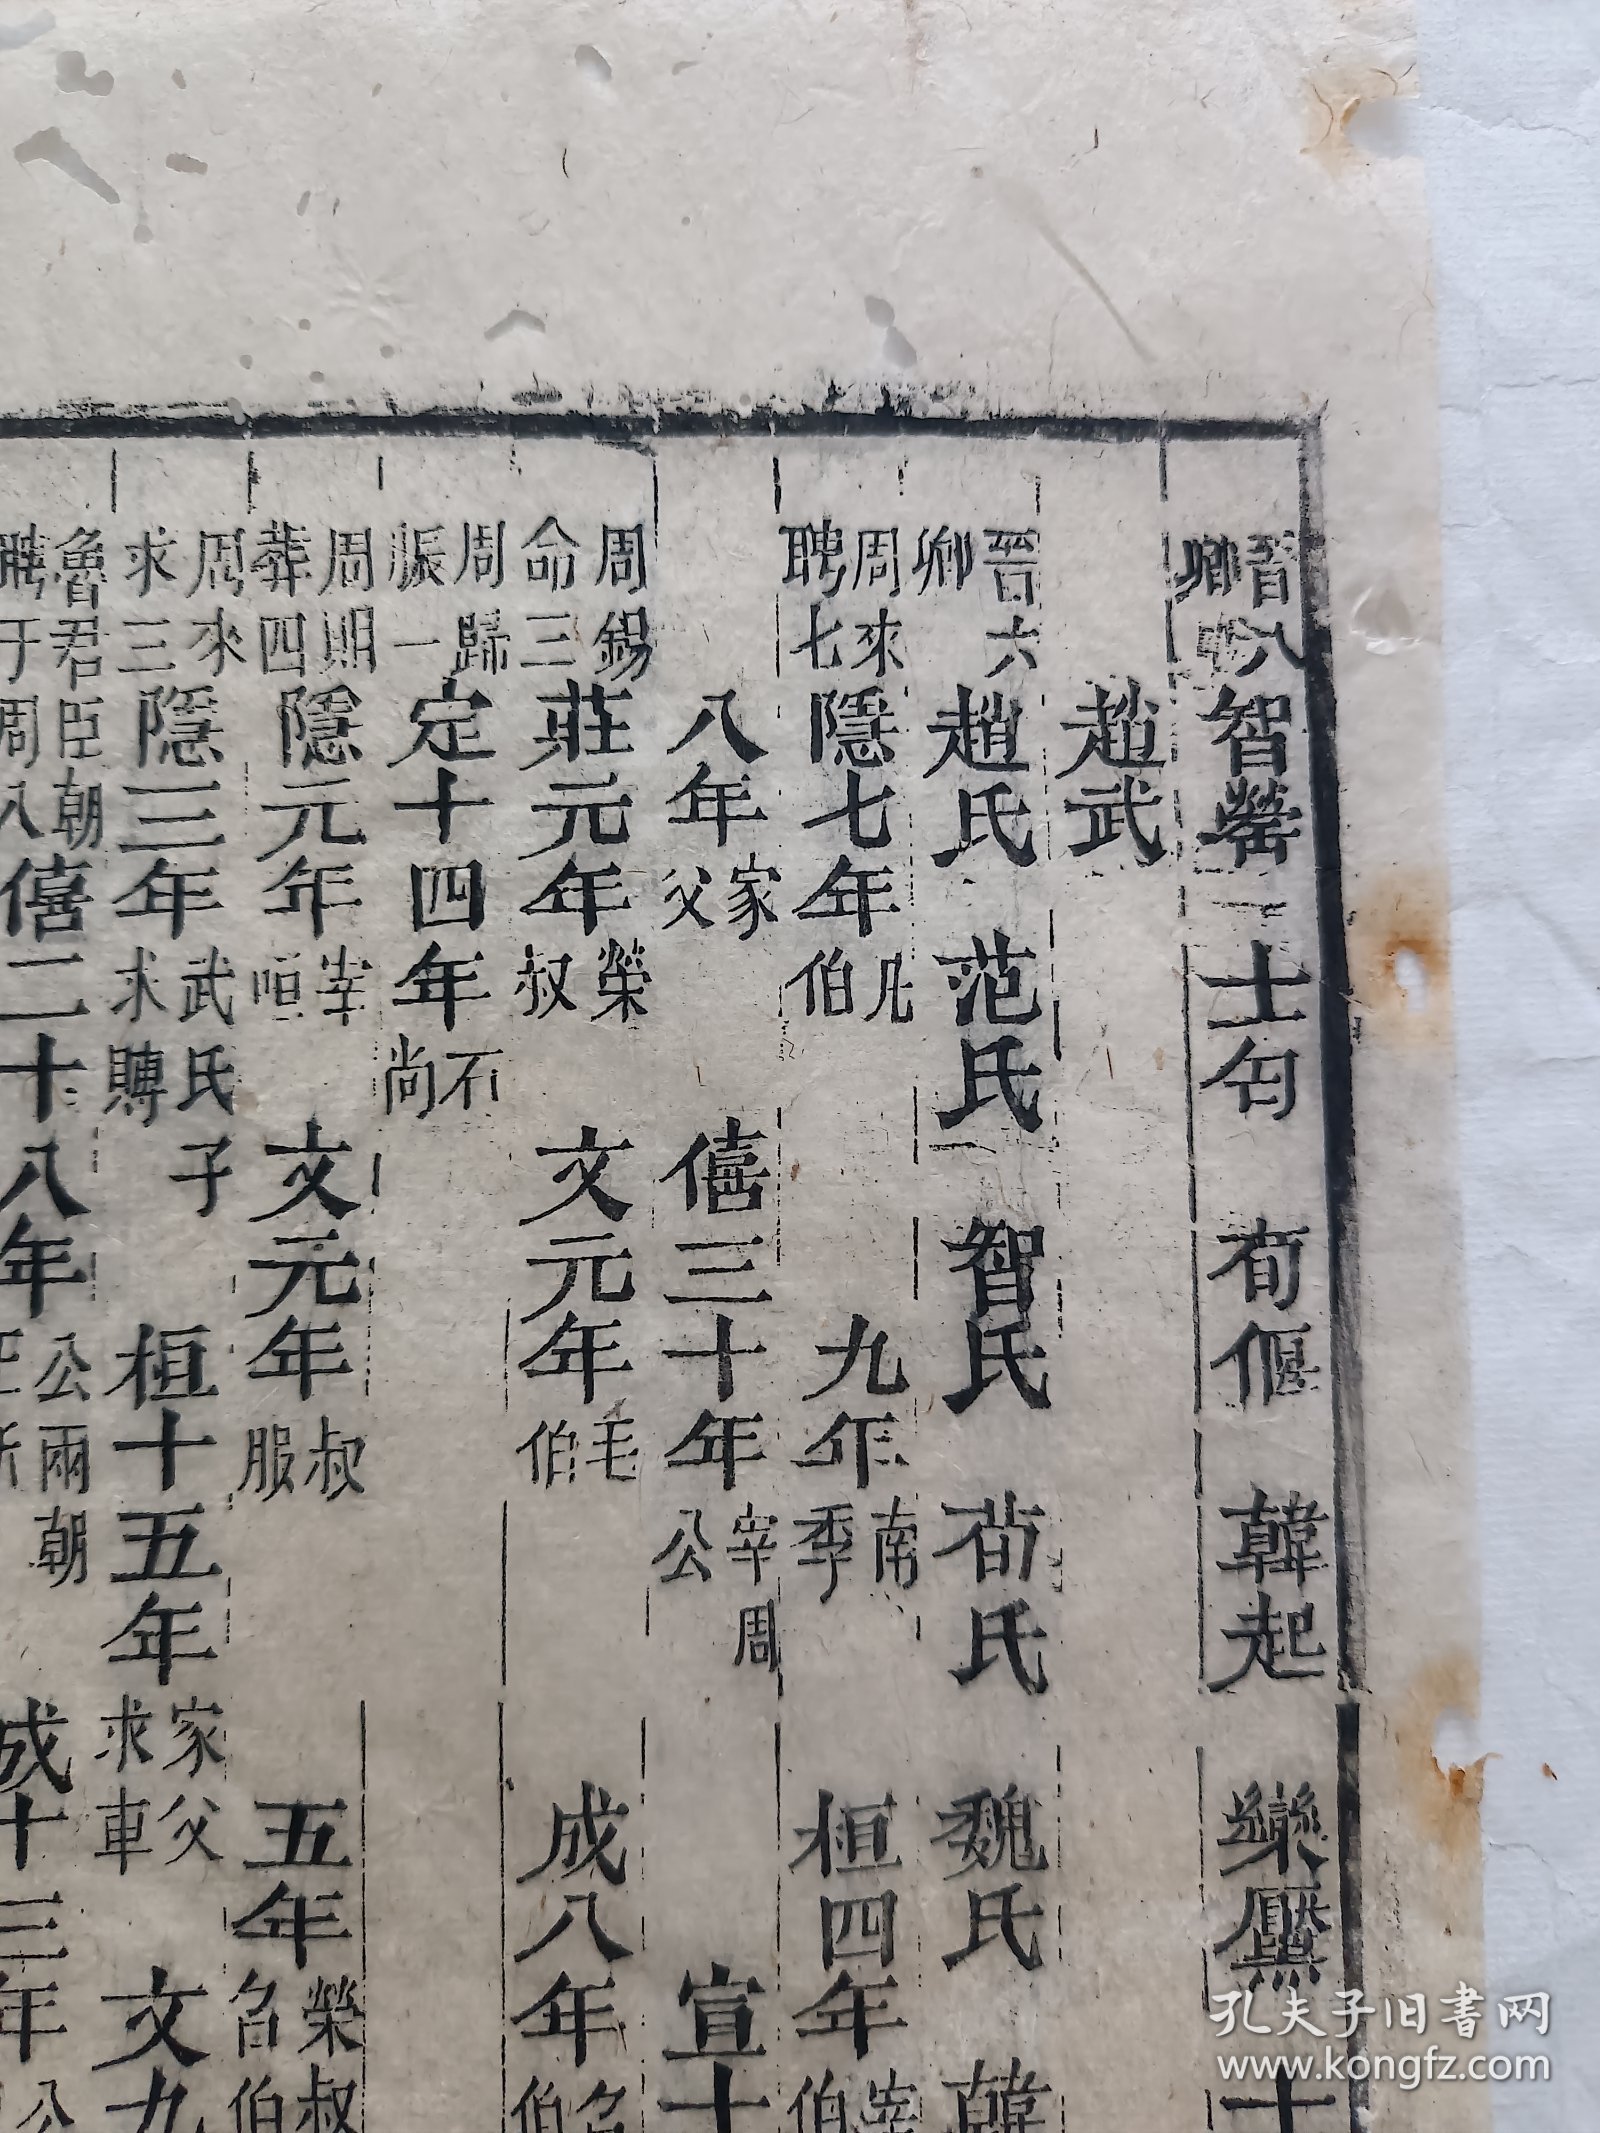 晉八卿 智罃 士匄 荀偃 韓起 欒黶 士
趙武
晉六卿 趙氏 范氏 智氏 荀氏 魏氏 韓
周來聘七 隱七年凡伯 九年南季 桓四年宰 伯
八年家父 僖三十年宰周公 宣十
周錫命三 莊元年榮叔 文元年毛伯 成八年召伯
周歸脤一 定十四年石尚
周賵葬四 隱元年宰咺 文元年叔服 五年榮叔 召伯
周來求三 隱三年武氏子求賻 桓十五年家父求車 文九
魯君臣朝聘于周八 僖二十八年公兩朝 王所 成十三年公
孔夫子旧书网
www.kongfz.com